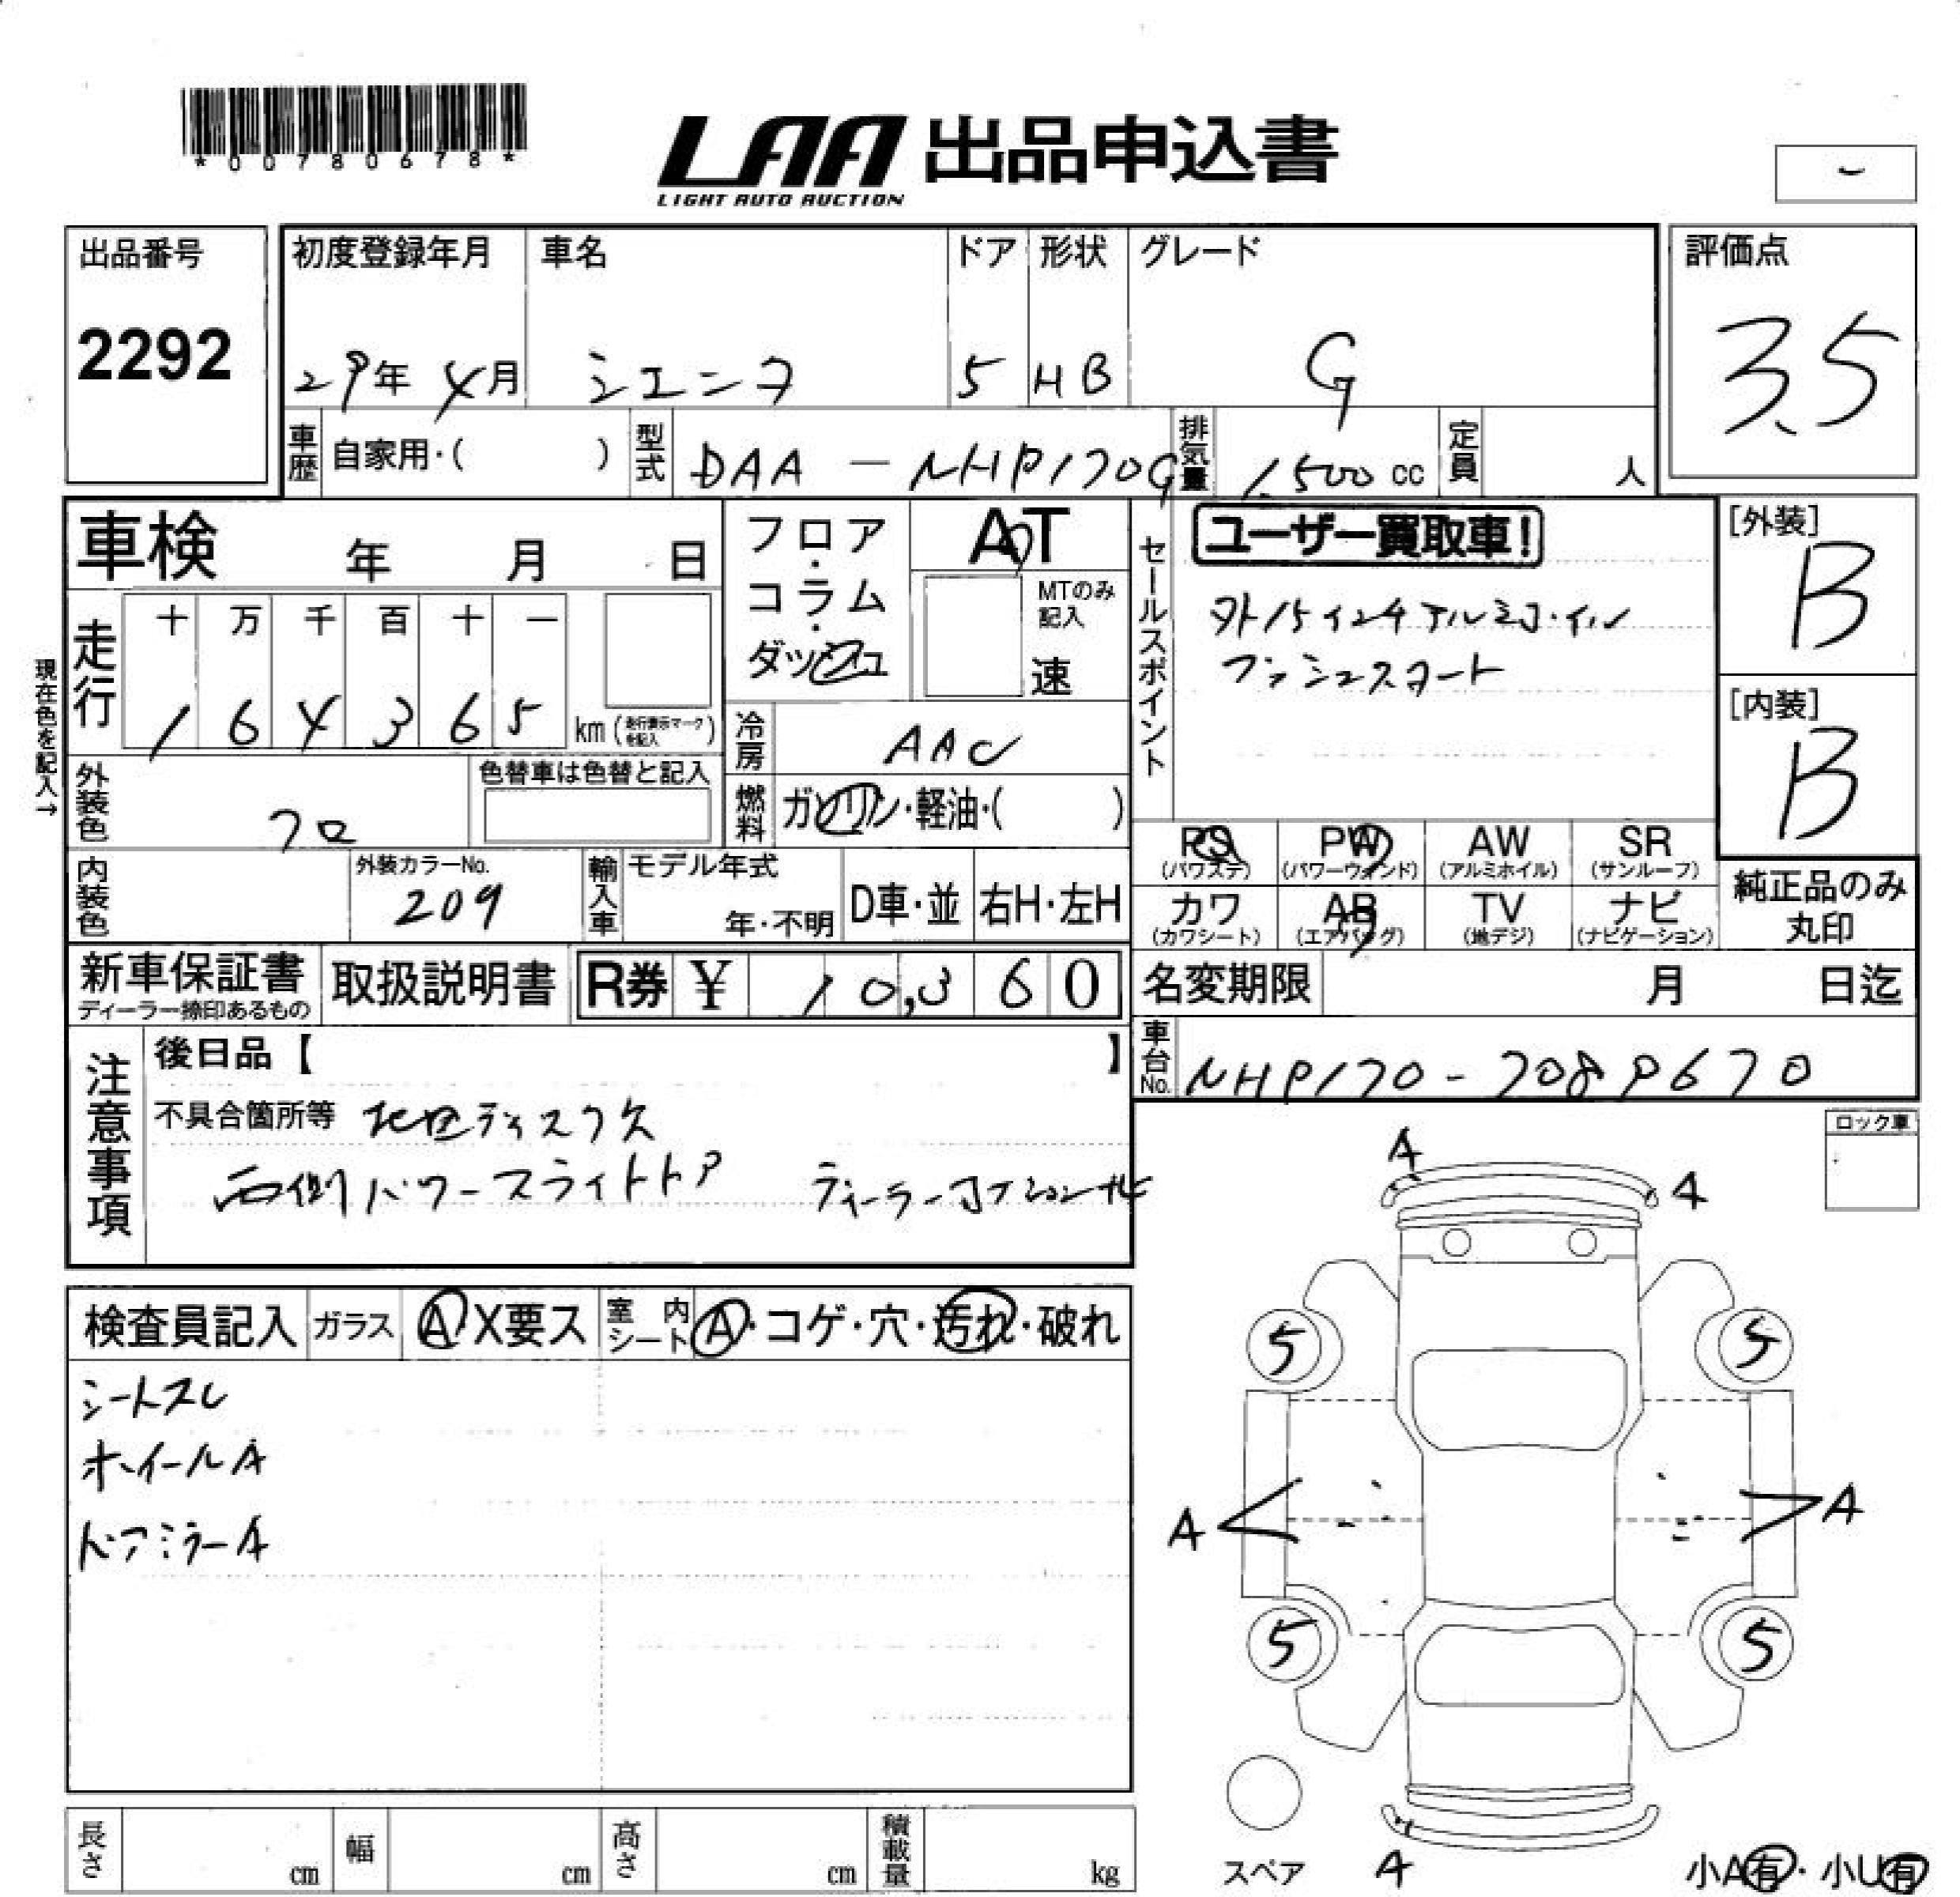 *00780678*
LAA 出品申込書
LIGHT AUTO AUCTION
出品番号 初度登録年月 車名 ドア 形状 グレード 評価点
2292 29年 4月 シエンタ 5 HB G 3.5
車歴 自家用・( ) 型式 DAA-NHP170G 排気量 1,500 cc 定員 人
車検 年 月 日 フロア・コラム・ダッシュ AT
MTのみ記入 速
セールスポイント ユーザー買取車!
外15インチアルミホイル
プッシュスタート
[外装] B
[内装] B
現在色を記入→
走行 十 万 千 百 十 一
1 6 4 3 6 5 km (走行表示マークを記入)
冷房 AAC
外装色 クロ 色替車は色替と記入
燃料 ガソリン・軽油・( )
PS PW AW SR
(パワステ) (パワーウィンド) (アルミホイル) (サンルーフ)
カワ AB TV ナビ
(カワシート) (エアバッグ) (地デジ) (ナビゲーション)
純正品のみ丸印
内装色 外装カラーNo. 209 輸入車 モデル年式 年・不明 D車・並 右H・左H
新車保証書 取扱説明書 R券 ¥ 10,360 名変期限 月 日迄
ディーラー捺印あるもの
車台No. NHP170-7089670
注意事項 後日品【 】
不具合箇所等 地図ディスク欠
両側パワースライドドア ディーラーオプションナビ
ロック車
A A
検査員記入 ガラス A X要ス 室内シート A・コゲ・穴・汚れ・破れ
シートスレ
ホイールA
ドアミラーA
5 5
A A
5 5
スペア A 小A有・小U有
長さ cm 幅 cm 高さ cm 積載量 kg